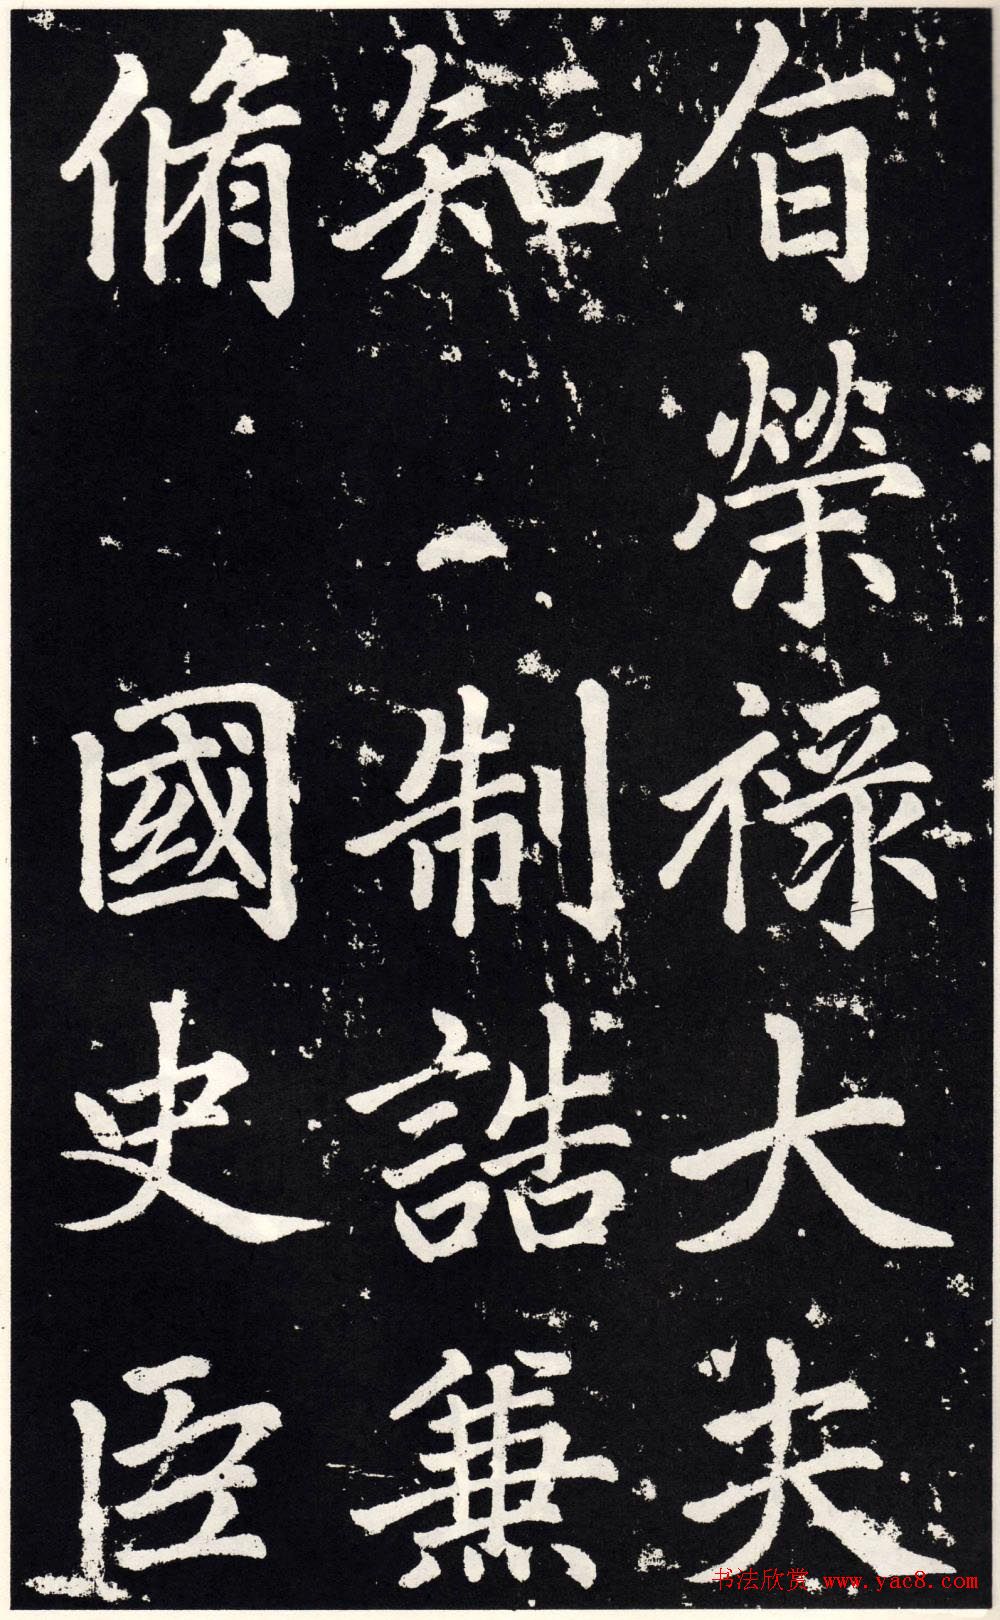 旨榮祿大夫
知制誥兼
脩國史臣
书法欣赏 www.yac8.com